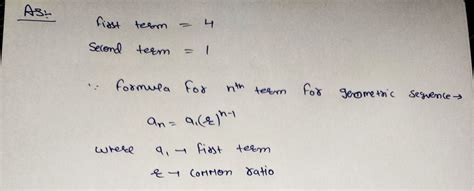 AS:-
first term = 4
Second term = 1
∵ formula for nth term for geometric sequence →
aₙ = a₁(r)ⁿ⁻¹
where a₁ → first term
r → common ratio